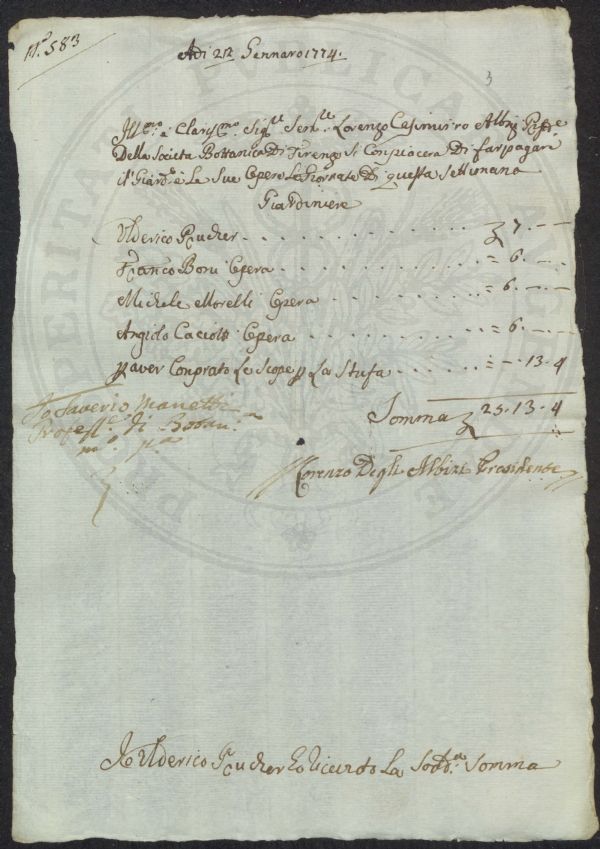 N.° 583
Adi 22 Gennaro 1774.
3
Ill:mo e Clariss:mo Sig:re Sen:re Lorenzo Casimirro Albizi
Della Societa Bottanica Di Firenze Si Conpiacera Di far pagare
il Giard:re e La Sue Opere Le Giornate Di questa Settimana
Giardiniere
Ulderico Prucher . . . . . . . . . . . £ 7 . — . —
Franco Boni Opera . . . . . . . . . . = 6 . — . —
Michele Morelli Opera . . . . . . . . = 6 . — . —
Angiolo Caciolli Opera . . . . . . . . = 6 . — . —
p aver Conprato Le Scope p La Stufa . . . . = — . 13 . 4
Somma £ 25 . 13 . 4
Io Saverio Manetti
Profess:e di Botan:ca
m:o p:a
Lorenzo Degli Albizi Presidente
Io Ulderico Prucher Ho Riceuto La Sodd:a Somma
PROSPERITATI PUBLICAE AUGENDAE